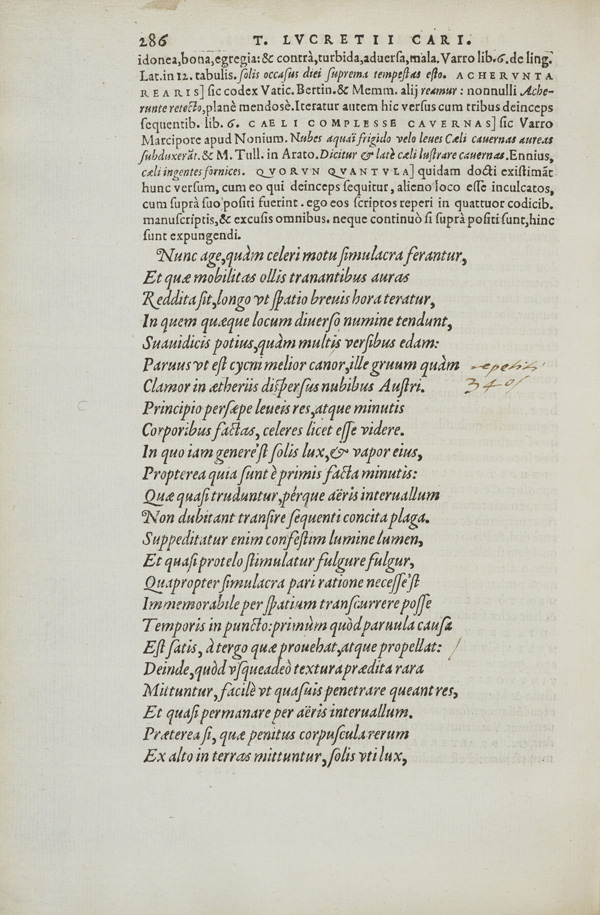 286 T. LVCRETII CARI.
idonea, bona, egregia: & contrà, turbida, aduersa, mala. Varro lib. 6. de ling.
Lat. in 12. tabulis. solis occasus diei suprema tempestas esto. ACHERVNTA
REARIS] sic codex Vatic. Bertin. & Memm. alij reamur: nonnulli Ache-
runte retecto, planè mendosè. Iteratur autem hic versus cum tribus deinceps
sequentib. lib. 6. CAELI COMPLESSE CAVERNAS] sic Varro
Marcipore apud Nonium. Nubes aquaï frigido velo leues Cæli cauernas aureas
subduxerāt. & M. Tull. in Arato. Dicitur & latè cæli lustrare cauernas. Ennius,
cæli ingentes fornices. QVORVN QVANTVLA] quidam docti existimāt
hunc versum, cum eo qui deinceps sequitur, alieno loco esse inculcatos,
cum suprà suo positi fuerint. ego eos scriptos reperi in quattuor codicib.
manuscriptis, & excusis omnibus. neque continuò si suprà positi sunt, hinc
sunt expungendi.
Nunc age, quàm celeri motu simulacra ferantur,
Et quæ mobilitas ollis tranantibus auras
Reddita sit, longo vt spatio breuis hora teratur,
In quem quæque locum diuerso numine tendunt,
Suauidicis potius, quàm multis versibus edam:
Paruus vt est cycni melior canor, ille gruum quàm
Clamor in ætheriis dispersus nubibus Austri.
Principio persæpe leueis res, atque minutis
Corporibus factas, celeres licet esse videre.
In quo iam genere'st solis lux, & vapor eius,
Propterea quia sunt è primis facta minutis:
Quæ quasi truduntur, pérque aëris interuallum
Non dubitant transire sequenti concita plaga.
Suppeditatur enim confestim lumine lumen,
Et quasi protelo stimulatur fulgure fulgur,
Quapropter simulacra pari ratione necesse'st
Immemorabile per spatium transcurrere posse
Temporis in puncto: primùm quòd paruula causa
Est satis, à tergo quæ prouehat, atque propellat:
Deinde, quòd vsqueadeò textura prædita rara
Mittuntur, facilè vt quasuis penetrare queant res,
Et quasi permanare per aëris interuallum.
Præterea si, quæ penitus corpuscula rerum
Ex alto in terras mittuntur, solis vti lux,